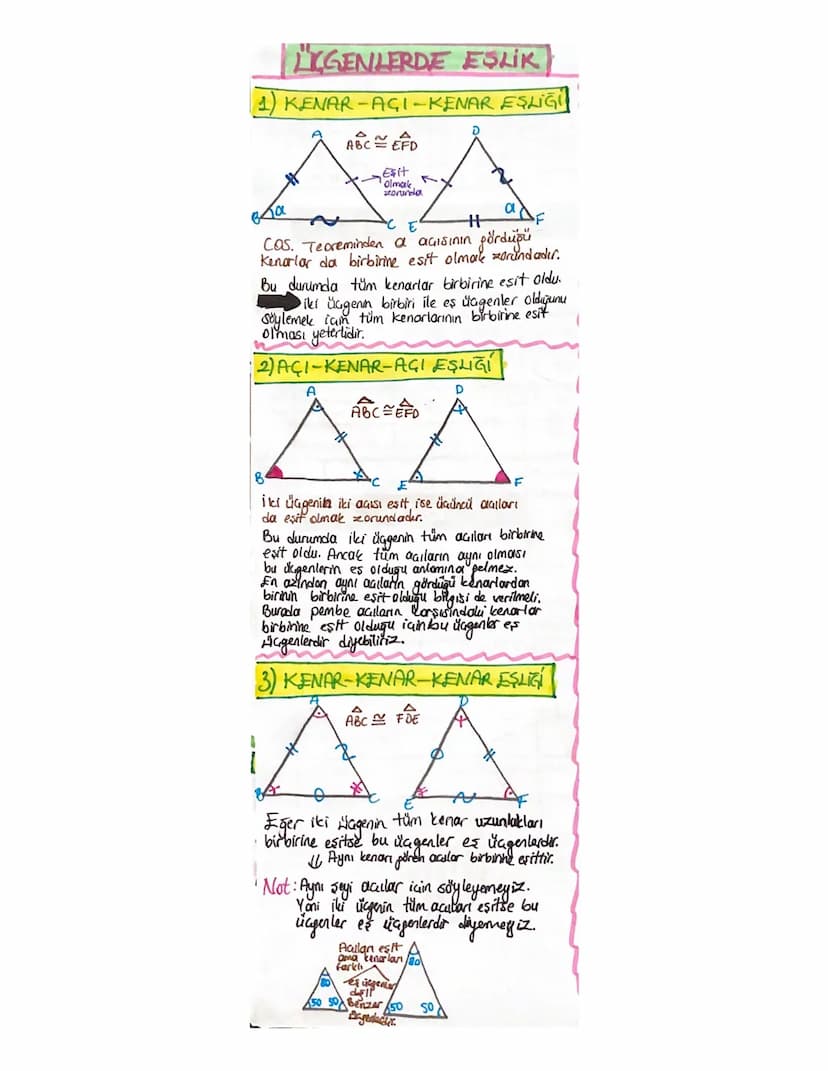 ÜÇGENLERDE EŞLİK
1) KENAR-AÇI-KENAR EŞLİĞİ
A
D
ABC ≅ EFD
Eşit
olmak
zorunda
B α
C
E
α F
Cos. Teoreminden α açısının gördüğü
Kenarlar da birbirine eşit olmak zorundadır.
Bu durumda tüm kenarlar birbirine eşit oldu.
İki üçgenin birbiri ile eş üçgenler olduğunu
söylemek için tüm kenarlarının birbirine eşit
olması yeterlidir.
2) AÇI-KENAR-AÇI EŞLİĞİ
A
D
ABC ≅ EFD
B
C
E
F
İki üçgenin iki açısı eşit ise üçüncü açıları
da eşit olmak zorundadır.
Bu durumda iki üçgenin tüm açıları birbirine
eşit oldu. Ancak tüm açıların aynı olması
bu üçgenlerin eş olduğu anlamına gelmez.
En azından aynı açıların gördüğü kenarlardan
birinin birbirine eşit olduğu bilgisi de verilmeli.
Burada pembe açıların karşısındaki kenarlar
birbirine eşit olduğu için bu üçgenler eş
üçgenlerdir diyebiliriz.
3) KENAR-KENAR-KENAR EŞLİĞİ
A
D
ABC ≅ FDE
B
C
E
F
Eğer iki üçgenin tüm kenar uzunlukları
birbirine eşitse bu üçgenler eş üçgenlerdir.
⇓ Aynı kenarı gören açılar birbirine eşittir.
Not: Aynı şeyi açılar için söyleyemeyiz.
Yani iki üçgenin tüm açıları eşitse bu
üçgenler eş üçgenlerdir diyemeyiz.
Açıları eşit
ama kenarları
farklı
80
80
eş üçgenler
değil
Benzer
üçgenlerdir.
50 50
50 50